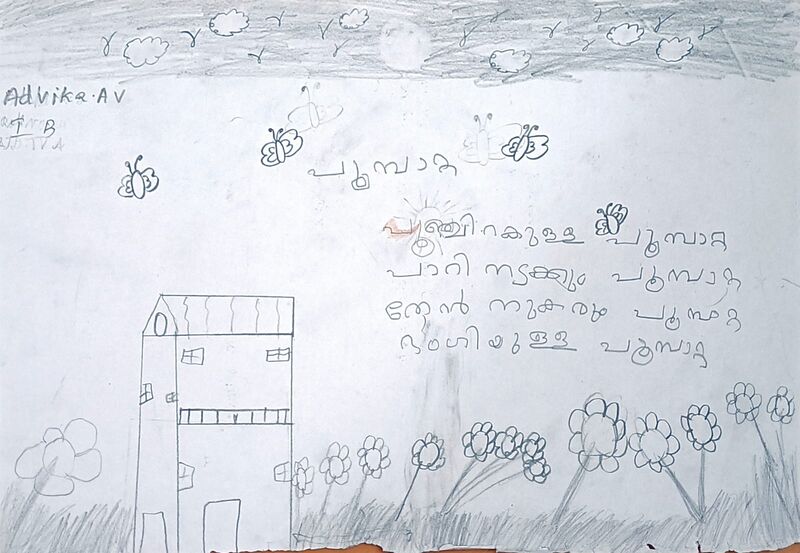 Advika. AV
I B
പൂമ്പാറ്റ
പൂഞ്ചിറകുള്ള പൂമ്പാറ്റ
പാറി നടക്കും പൂമ്പാറ്റ
തേൻ നുകരും പൂമ്പാറ്റ
ഭംഗിയുള്ള പൂമ്പാറ്റ